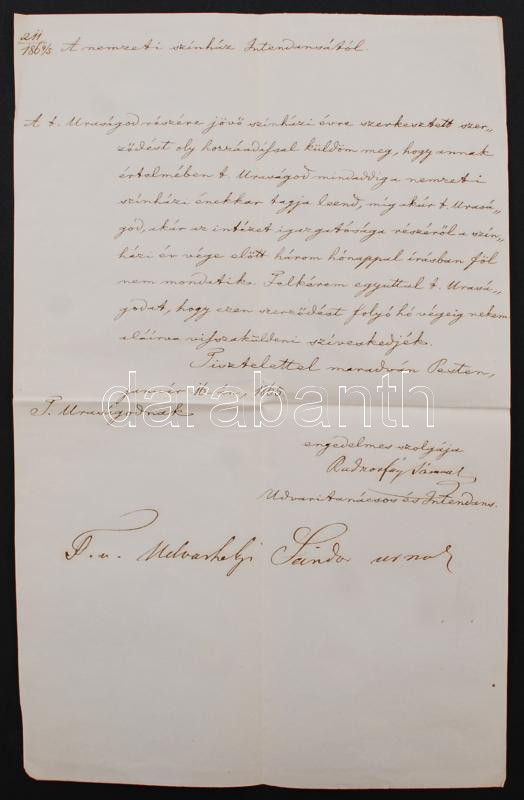 211
186 4/5 A nemzeti szinház Intendansától.
A t. Uraságod részére jövő szinházi évre szerkesztett szer„
ződést oly hozzáadással küldöm meg, hogy annak
értelmében t. Uraságod mindaddig a nemzeti
szinházi énekkar tagja leend, mig akár t. Urasá„
god, akár az intézet igazgatósága részéről a szin„
házi év vége előtt három hónappal irásban föl
nem mondatik. Felkérem egyuttal t. Urasá„
godat, hogy ezen szerződést folyó hó végeig nekem
aláirva visszaküldeni sziveskedjék.
Tisztelettel maradván Pesten,
január 16-án, 1865
T. Uraságodnak
darabanth
engedelmes szolgája
Radnotfáy Sámuel
Udvari tanácsos és Intendans.
T. cz. Udvarhelyi Sándor urnak